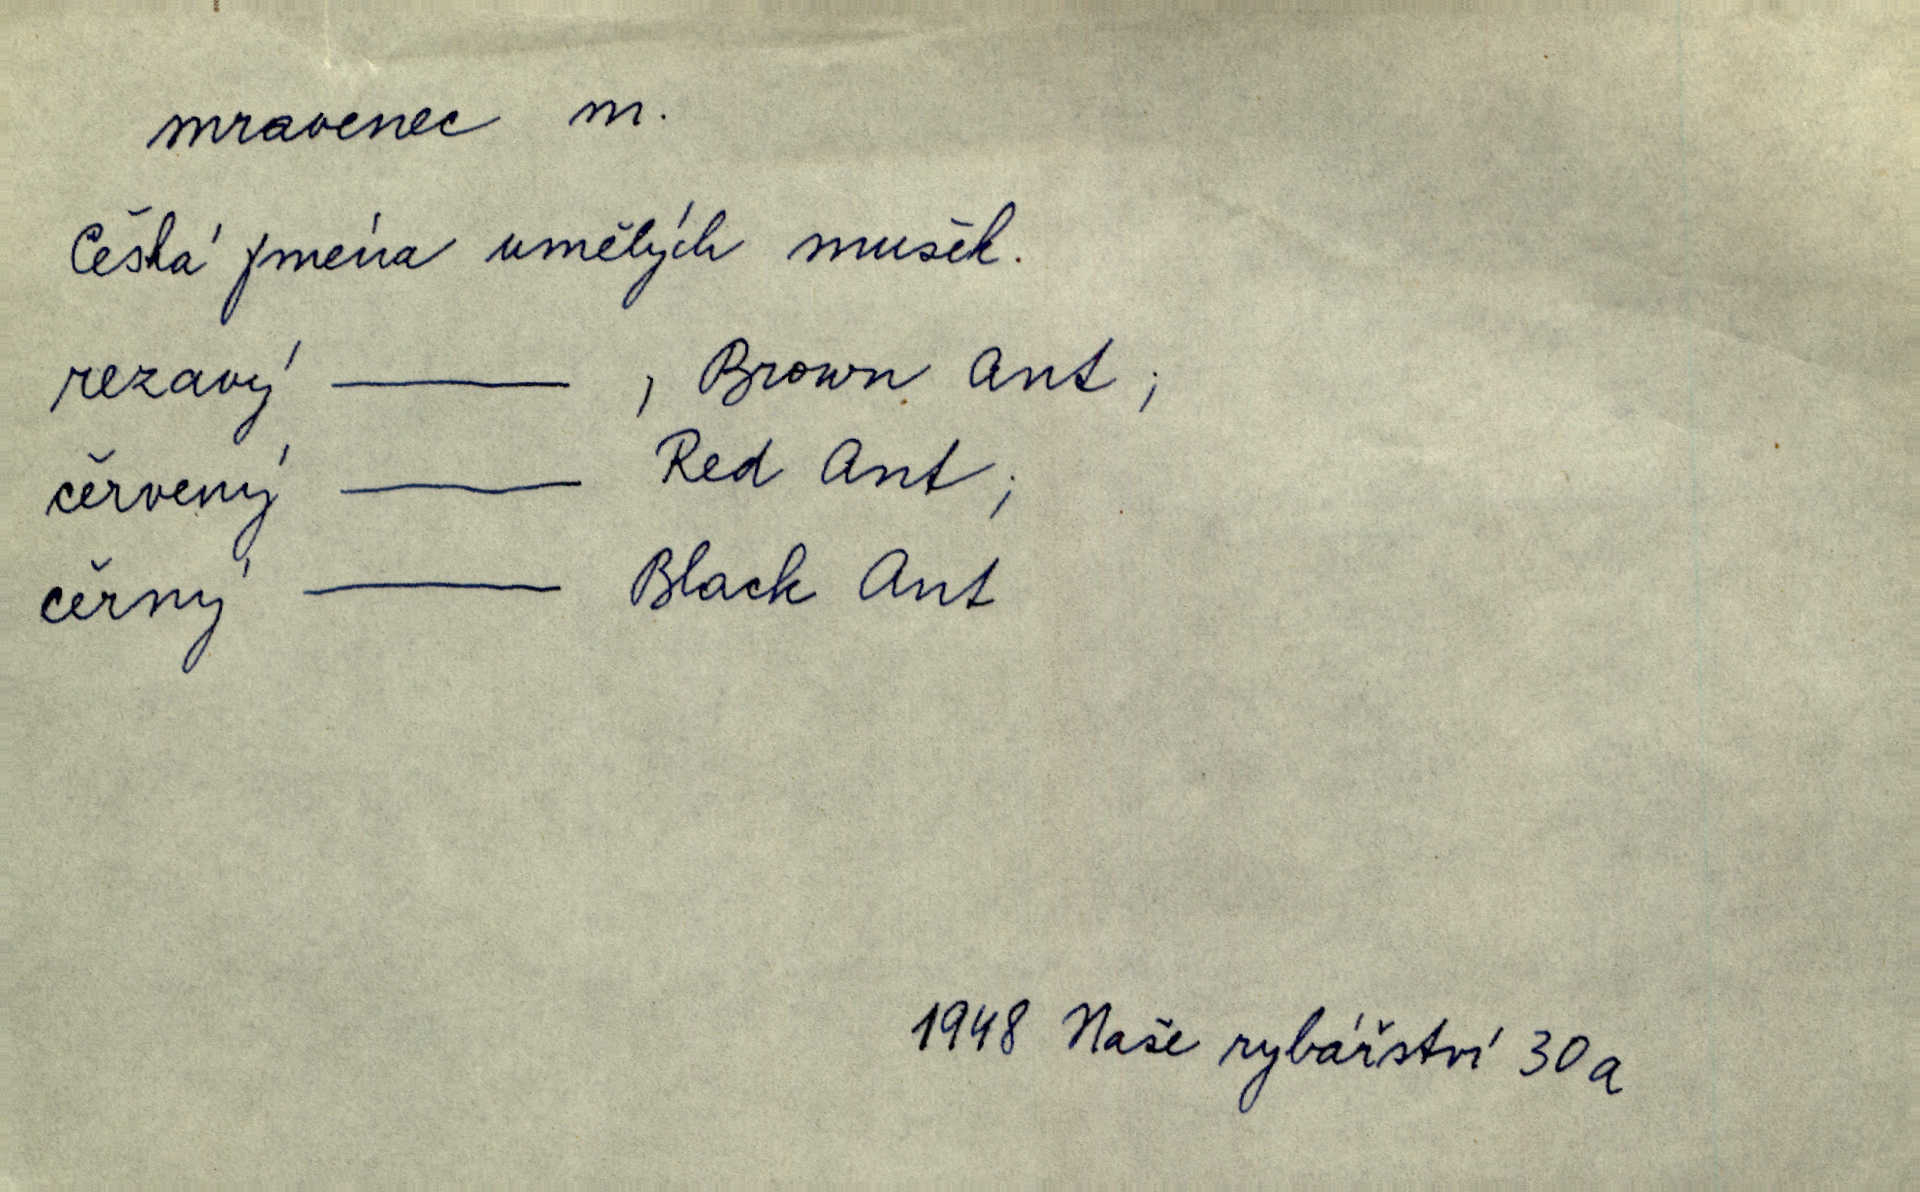 mravenec m.
Česká jména umělých mušek.
rezavý ——— , Brown Ant ;
červený ——— Red Ant ;
černý ——— Black Ant
1948 Naše rybářství 30a